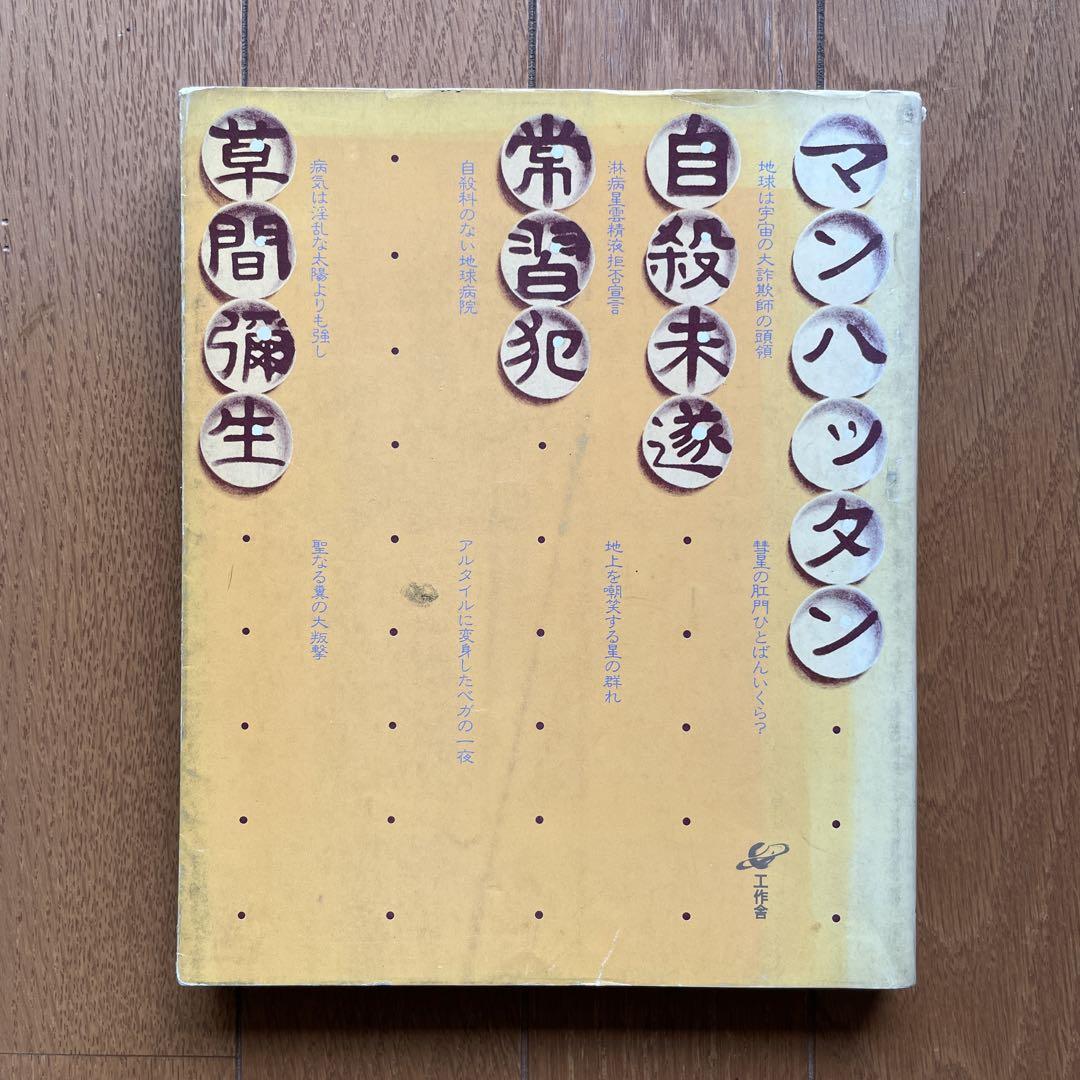 マンハッタン
自殺未遂
常習犯
草間彌生
地球は宇宙の大詐欺師の頭領
彗星の肛門ひとばんいくら?
淋病星雲精液拒否宣言
地上を嘲笑する星の群れ
自殺科のない地球病院
アルタイルに変身したベガの一夜
病気は淫乱な太陽よりも強し
聖なる糞の大叛撃
工作舎